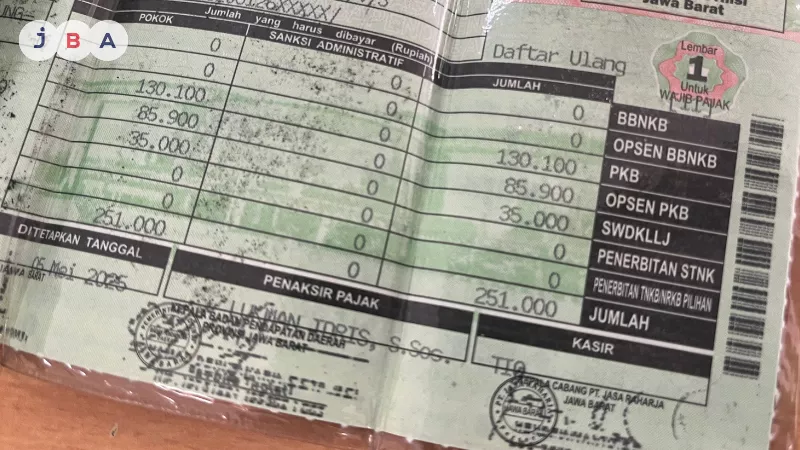 JBA
Jawa Barat
Jumlah yang harus dibayar (Rupiah)
POKOK
SANKSI ADMINISTRATIF
JUMLAH
Daftar Ulang
Lembar
1
Untuk
WAJIB PAJAK
0 0 0 BBNKB
0 0 0 OPSEN BBNKB
130.100 0 130.100 PKB
85.900 0 85.900 OPSEN PKB
35.000 0 35.000 SWDKLLJ
0 0 0 PENERBITAN STNK
0 0 0 PENERBITAN TNKB/NRKB PILIHAN
251.000 251.000 JUMLAH
DITETAPKAN TANGGAL
PENAKSIR PAJAK
KASIR
JAWA BARAT
05 Mei 2025
KEPALA BADAN PENDAPATAN DAERAH
PROVINSI JAWA BARAT
LUKMAN IDRIS, S.Sos.
TIO
KEPALA CABANG PT. JASA RAHARJA
JAWA BARAT